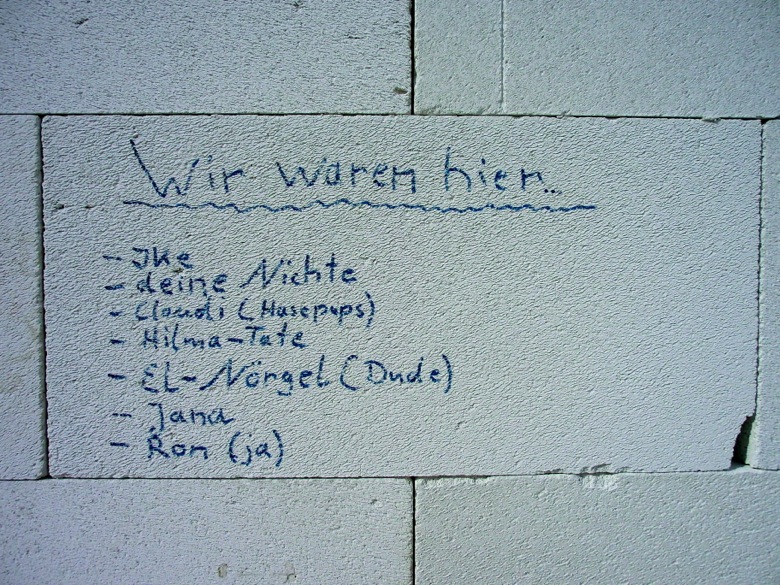 Wir waren hier..
- Ike
- deine Nichte
- Claudi (Hasepups)
- Hilma-Tate
- El-Nörgel (Dude)
- Jana
- Ron (ja)